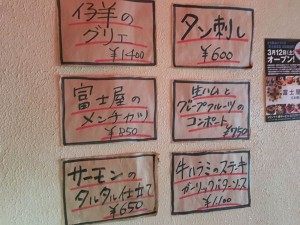 仔羊の
グリエ
¥1400
タン刺し
¥600
富士屋の
メンチカツ
¥850
生ハムと
グレープフルーツの
コンポート
¥950
サーモンの
タルタル仕立て
¥650
牛ハラミのステーキ
ガーリックバターソース
¥1100
3月12日(土)
オープン!
富士屋